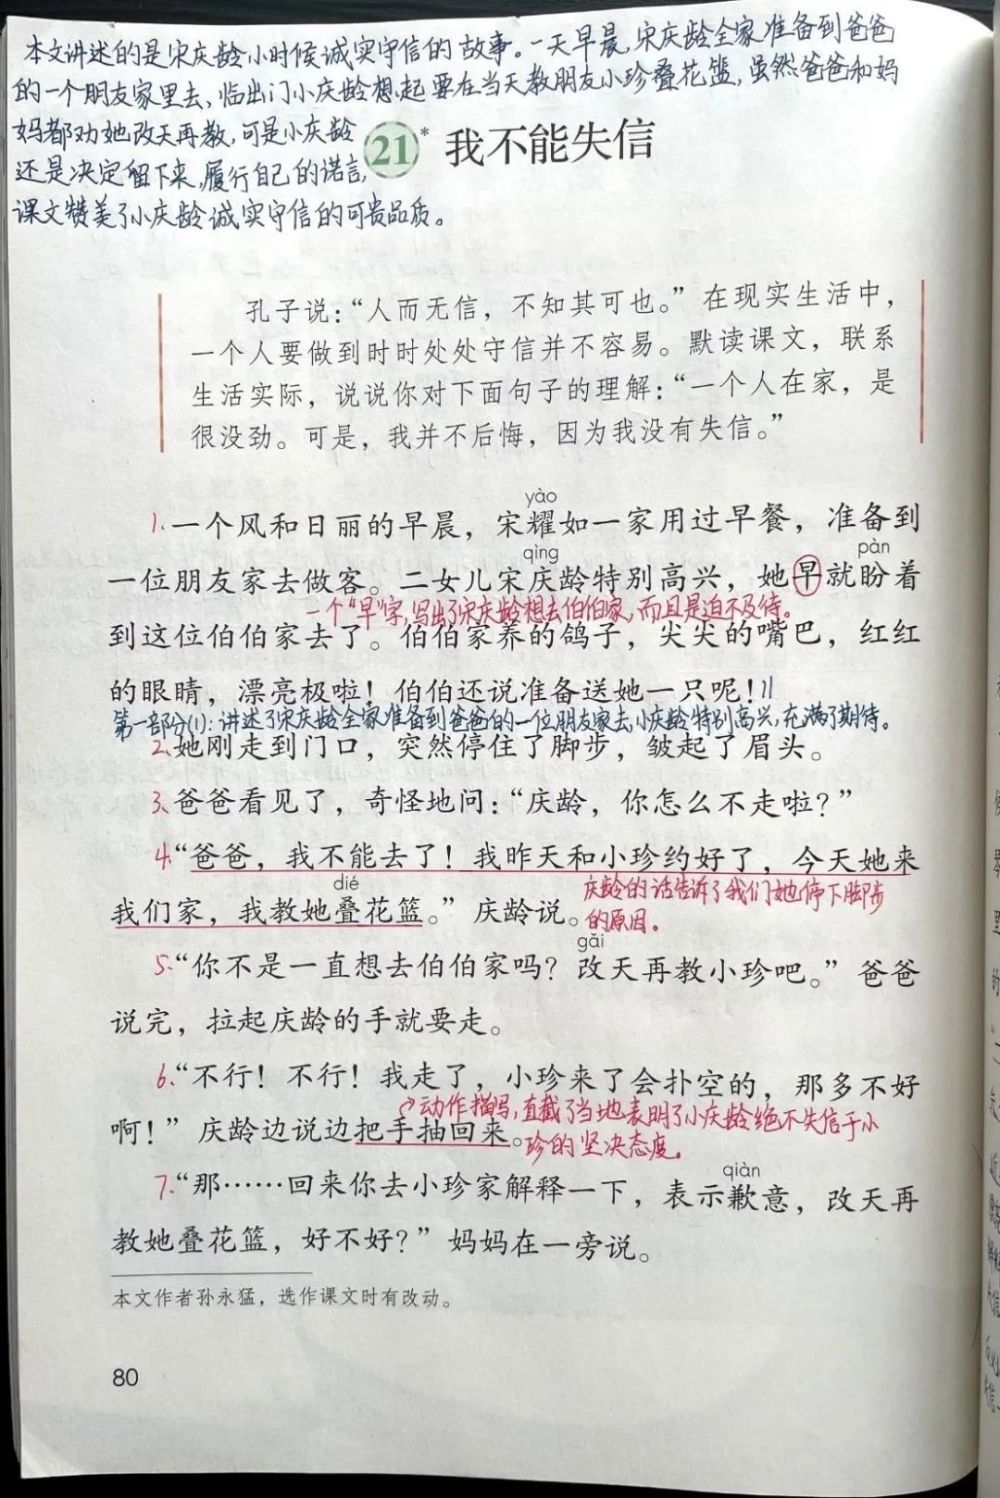 本文讲述的是宋庆龄小时候诚实守信的故事。一天早晨,宋庆龄全家准备到爸爸
的一个朋友家里去,临出门小庆龄想起要在当天教朋友小珍叠花篮,虽然爸爸和妈
妈都劝她改天再教,可是小庆龄
还是决定留下来,履行自己的诺言,
课文赞美了小庆龄诚实守信的可贵品质。
21* 我不能失信
孔子说：“人而无信，不知其可也。”在现实生活中，
一个人要做到时时处处守信并不容易。默读课文，联系
生活实际，说说你对下面句子的理解：“一个人在家，是
很没劲。可是，我并不后悔，因为我没有失信。”
yào
1.一个风和日丽的早晨，宋耀如一家用过早餐，准备到
qìng pàn
一位朋友家去做客。二女儿宋庆龄特别高兴，她早就盼着
一个“早”字,写出了宋庆龄想去伯伯家,而且是迫不及待。
到这位伯伯家去了。伯伯家养的鸽子，尖尖的嘴巴，红红
的眼睛，漂亮极啦！伯伯还说准备送她一只呢！//
第一部分(1):讲述了宋庆龄全家准备到爸爸的一位朋友家去,小庆龄特别高兴,充满了期待。
2.她刚走到门口，突然停住了脚步，皱起了眉头。
3.爸爸看见了，奇怪地问：“庆龄，你怎么不走啦？”
4.“爸爸，我不能去了！我昨天和小珍约好了，今天她来
dié
庆龄的话告诉了我们她停下脚步
我们家，我教她叠花篮。”庆龄说。
的原因。
gǎi
5.“你不是一直想去伯伯家吗？改天再教小珍吧。”爸爸
说完，拉起庆龄的手就要走。
6.“不行！不行！我走了，小珍来了会扑空的，那多不好
动作描写,直截了当地表明了小庆龄绝不失信于小
啊！”庆龄边说边把手抽回来。
珍的坚决态度。
qiàn
7.“那……回来你去小珍家解释一下，表示歉意，改天再
教她叠花篮，好不好？”妈妈在一旁说。
本文作者孙永猛，选作课文时有改动。
80